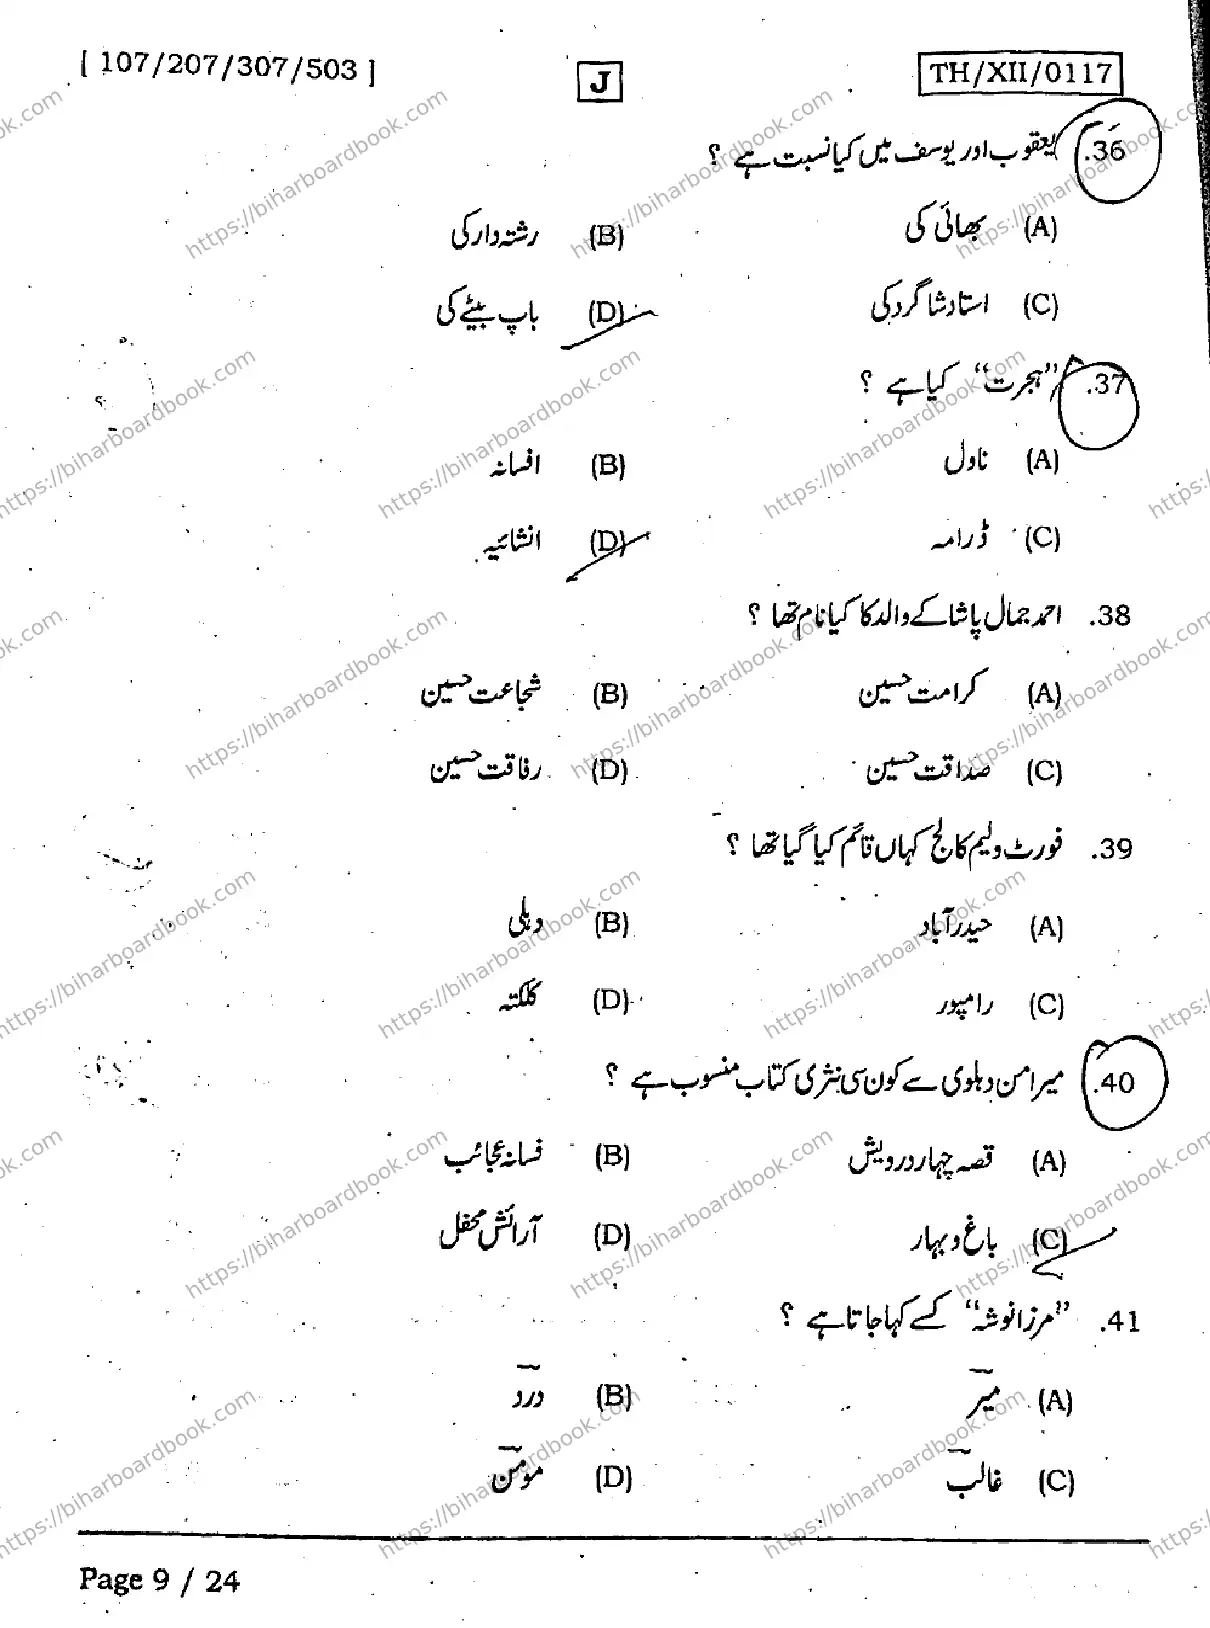 [ 107/207/307/503 ] J TH/XII/0117
36. یعقوب اور یوسف میں کیا نسبت ہے ؟
(A) بھائی کی (B) رشتہ دار کی
(C) استاد شاگرد کی (D) باپ بیٹے کی
37. ”ہجرت“ کیا ہے ؟
(A) ناول (B) افسانہ
(C) ڈرامہ (D) انشائیہ
38. احمد جمال پاشا کے والد کا کیا نام تھا ؟
(A) کرامت حسین (B) شجاعت حسین
(C) صداقت حسین (D) رفاقت حسین
39. فورٹ ولیم کالج کہاں قائم کیا گیا تھا ؟
(A) حیدرآباد (B) دہلی
(C) رامپور (D) کلکتہ
40. میر امن دہلوی سے کون سی نثری کتاب منسوب ہے ؟
(A) قصہ چہار درویش (B) فسانہ عجائب
(C) باغ و بہار (D) آرائش محفل
41. ”مرزا نوشہ“ کسے کہا جاتا ہے ؟
(A) میر (B) درد
(C) غالب (D) مومن
Page 9 / 24
https://biharboardbook.com